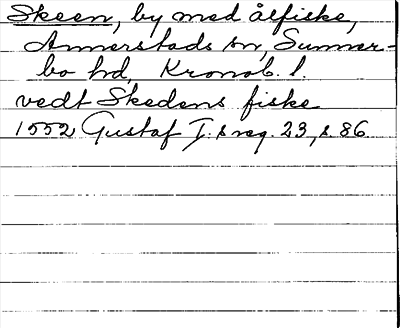 Skeen, by med ålfiske,
Annerstads sn, Sunner-
bo hd, Kronob. l.
vedt Skedens fiske
1552 Gustaf I:s reg. 23, s. 86.